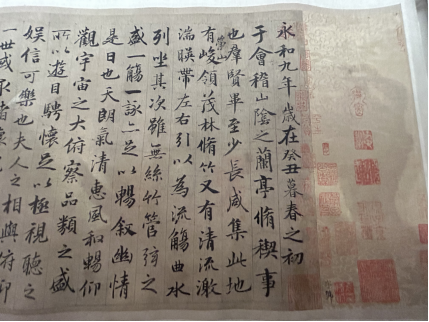 永和九年歲在癸丑暮春之初
于會稽山陰之蘭亭脩禊事
也群賢畢至少長咸集此地
有崇山峻領茂林脩竹又有清流激
湍暎帶左右引以為流觴曲水
列坐其次雖無絲竹管弦之
盛一觴一詠亦足以暢叙幽情
是日也天朗氣清惠風和暢仰
觀宇宙之大俯察品類之盛
所以遊目騁懷足以極視聽之
娛信可樂也夫人之相與俯仰
一世或取諸懷